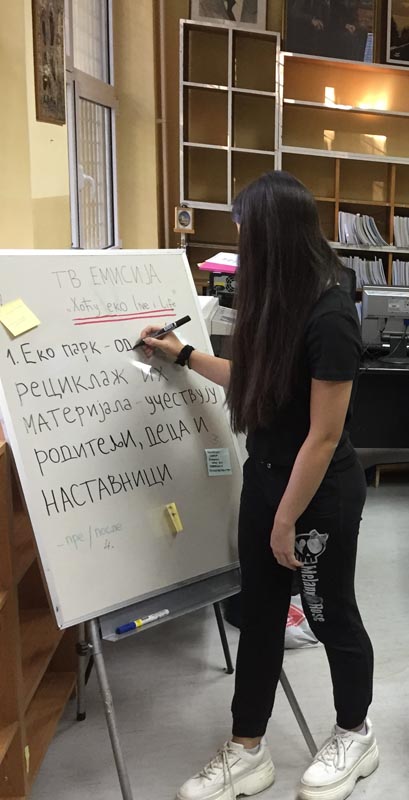 ТВ ЕМИСИЈА
"Хоћу eko live i Life"
1. Еко парк - од
рециклаж их
материјала - учествују
родитељи, деца и
наставници
- пре / после
4.
Melany Rose